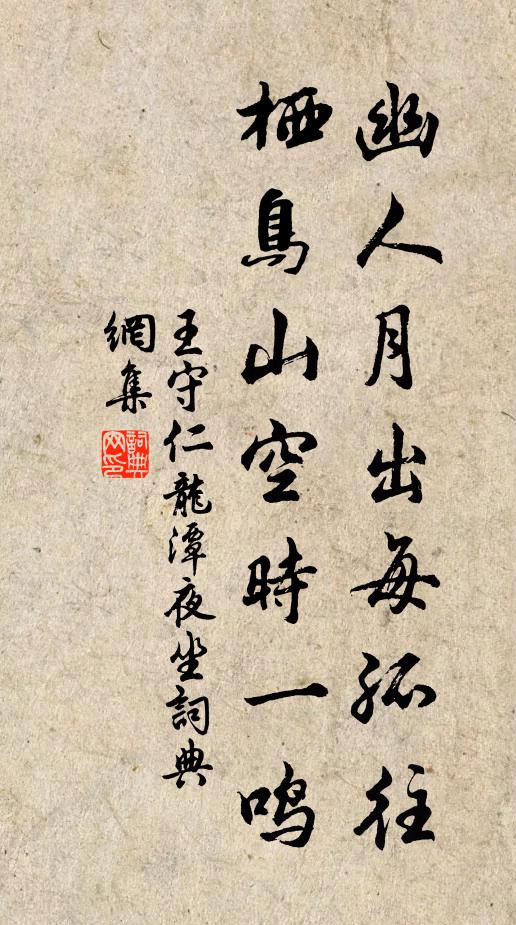 幽人月出每孤往
栖鳥山空時一鳴
王守仁龍潭夜坐詞典
網集
詞典
网印